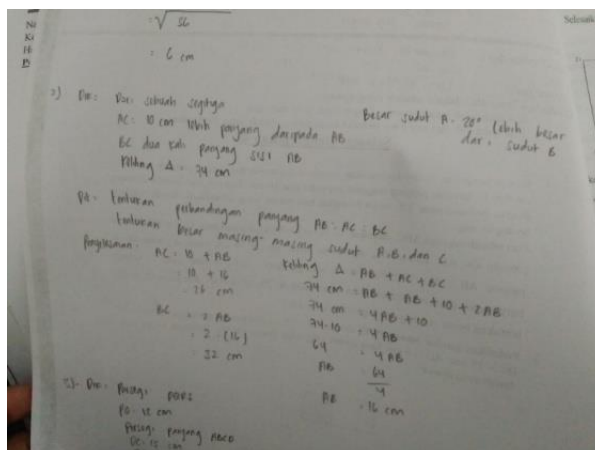 = √36
= 6 cm
Ni
Ke
16
B
Selesaik
2) Dik: Dari sebuah segitiga
AC: 10 cm lebih panjang daripada AB
BC dua kali panjang sisi AB
Keliling Δ = 74 cm
Besar sudut A = 20° lebih besar
dari sudut B
Dit: tentukan perbandingan panjang AB : AC : BC
tentukan besar masing-masing sudut A, B, dan C
Penyelesaian:
AC = 10 + AB
= 10 + 16
= 26 cm
BC = 2 AB
= 2 (16)
= 32 cm
Keliling Δ = AB + AC + BC
74 cm = AB + AB + 10 + 2AB
74 cm = 4AB + 10
74-10 = 4AB
64 = 4AB
AB = 64
4
AB = 16 cm
3). Dik: Persegi PQRS
PQ = 12 cm
Persegi panjang ABCD